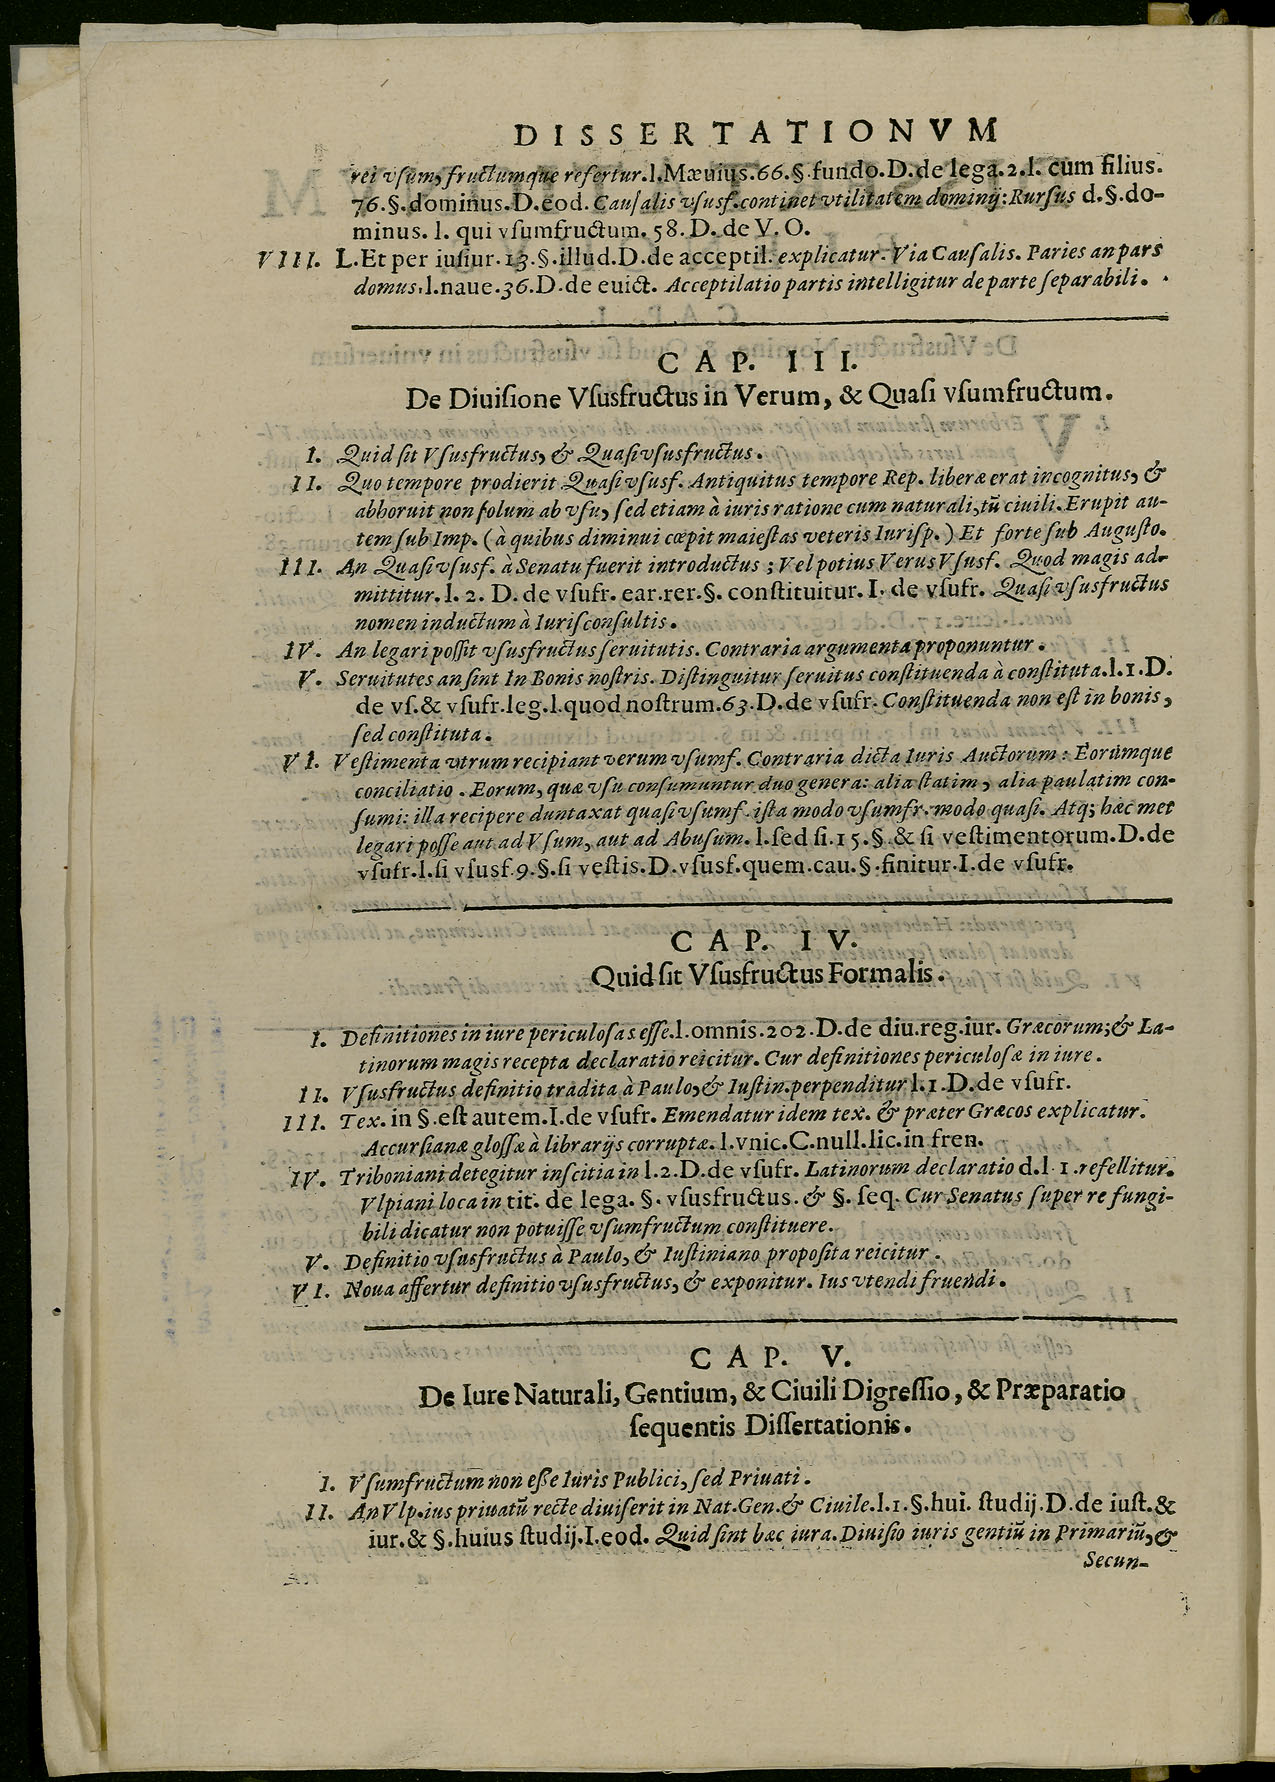 DISSERTATIONVM
rei vſum, fructumque refertur. l. Mæuius. 66. §. fundo. D. de lega. 2. l. cum filius.
76. §. dominus. D. eod. Cauſalis vſusf. continet vtilitatem dominij: Rurſus d. §. do-
minus. l. qui vſumfructum. 58. D. de V. O.
VIII. L. Et per iuſiur. 13. §. illud. D. de acceptil. explicatur. Via Cauſalis. Paries an pars
domus. l. naue. 36. D. de euict. Acceptilatio partis intelligitur de parte ſeparabili.
CAP. III.
De Diuiſione Vſusfructus in Verum, & Quaſi vſumfructum.
I. Quid ſit Vſusfructus, & Quaſivſusfructus.
II. Quo tempore prodierit Quaſivſusf. Antiquitus tempore Rep. liberæ erat incognitus, &
abhoruit non ſolum ab vſu, ſed etiam à iuris ratione cum naturali, tũ ciuili. Erupit au-
tem ſub Imp. (à quibus diminui cœpit maieſtas veteris Iuriſp.) Et forte ſub Auguſto.
III. An Quaſivſusf. à Senatu fuerit introductus; Vel potius Verus Vſusf. Quod magis ad-
mittitur. l. 2. D. de vſufr. ear. rer. §. conſtituitur. I. de vſufr. Quaſivſusfructus
nomen inductum à Iuriſconſultis.
IV. An legari poſſit vſusfructus ſeruitutis. Contraria argumenta proponuntur.
V. Seruitutes an ſint In Bonis noſtris. Diſtinguitur ſeruitus conſtituenda à conſtituta. l. 1. D.
de vſ. & vſufr. leg. l. quod noſtrum. 63. D. de vſufr. Conſtituenda non eſt in bonis,
ſed conſtituta.
VI. Veſtimenta vtrum recipiant verum vſumf. Contraria dicta Iuris Auctorum: Eorúmque
conciliatio. Eorum, quæ vſu conſumuntur duo genera: alia ſtatim, alia paulatim con-
ſumi: illa recipere duntaxat quaſivſumf. iſta modo vſumfr. modo quaſi. Atq; hæc met
legari poſſe aut ad Vſum, aut ad Abuſum. l. ſed ſi. 15. §. & ſi veſtimentorum. D. de
vſufr. l. ſi vſusf. 9. §. ſi veſtis. D. vſusf. quem. cau. §. finitur. I. de vſufr.
CAP. IV.
Quid ſit Vſusfructus Formalis.
I. Definitiones in iure periculoſas eſſe. l. omnis. 202. D. de diu. reg. iur. Græcorum; & La-
tinorum magis recepta declaratio reicitur. Cur definitiones periculoſæ in iure.
II. Vſusfructus definitio tradita à Paulo, & Iuſtin. perpenditur l. 1. D. de vſufr.
III. Tex. in §. eſt autem. I. de vſufr. Emendatur idem tex. & præter Græcos explicatur.
Accurſianæ gloſſæ à librarijs corruptæ. l. vnic. C. null. lic. in fren.
IV. Triboniani detegitur inſcitia in l. 2. D. de vſufr. Latinorum declaratio d. l. 1. refellitur.
Vlpiani loca in tit. de lega. §. vſusfructus. & §. ſeq. Cur Senatus ſuper re fungi-
bili dicatur non potuiſſe vſumfructum conſtituere.
V. Definitio vſusfructus à Paulo, & Iuſtiniano propoſita reicitur.
VI. Noua affertur definitio vſusfructus, & exponitur. Ius vtendi fruendi.
CAP. V.
De Iure Naturali, Gentium, & Ciuili Digreſſio, & Præparatio
ſequentis Diſſertationis.
I. Vſumfructum non eſſe Iuris Publici, ſed Priuati.
II. An Vlp. ius priuatũ recte diuiſerit in Nat. Gen. & Ciuile. l. 1. §. hui. ſtudij. D. de iuſt. &
iur. & §. huius ſtudij. I. eod. Quid ſint hæc iura. Diuiſio iuris gentiũ in Primariũ, &
Secun-